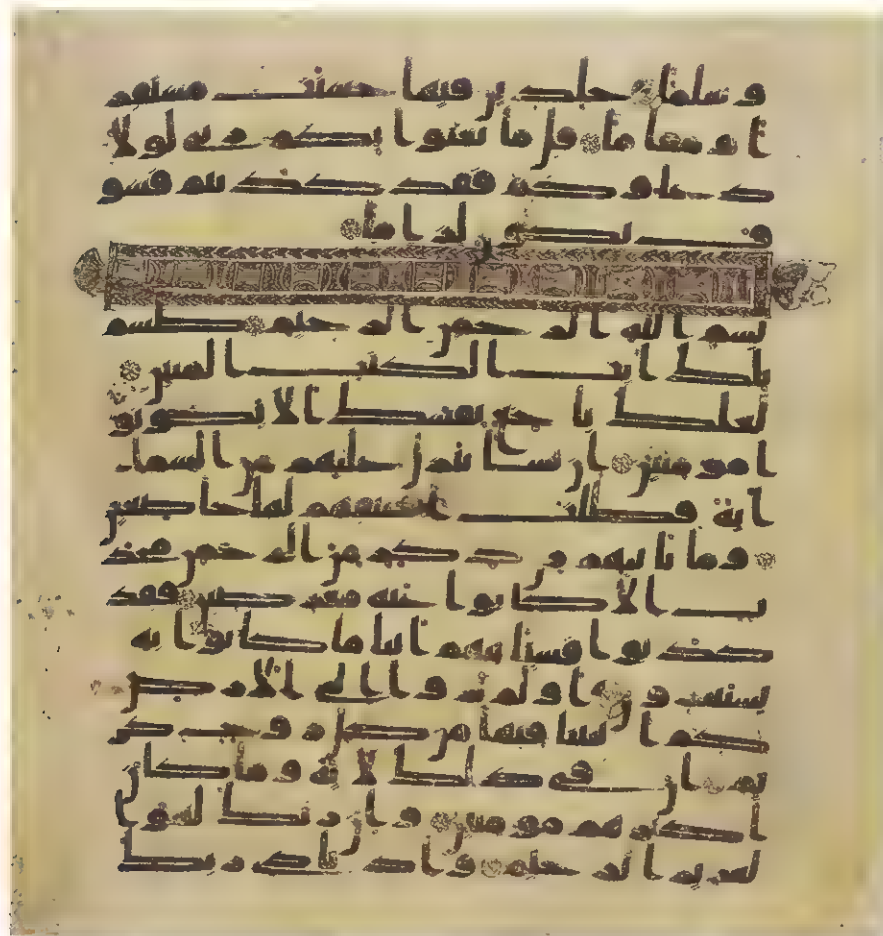 و سلما خلدين فيها حسنت مستقر
ا و مقاما قل ما يعبوا بكم ربي لولا
دعاوكم فقد كذبتم فسو
ف يكون لزاما
بسم الله الرحمن الرحيم طسم
تلك ايت الكتب المبين
لعلك باخع نفسك الا يكونو
ا مومنين ان نشا ننزل عليهم من السما
اية فظلت اعنقهم لها خضعين
وما ياتيهم من ذكر من الرحمن محد
ث الا كانوا عنه معرضين فقد
كذبوا فسياتيهم انبا ما كانوا به
يستهزون اولم يروا الى الارض
كم انبتنا فيها من كل زوج كر
يم ان في ذلك لاية وما كان
اكثرهم مومنين وان ربك لهو ا
لعزيز الرحيم واذ نادى ربك